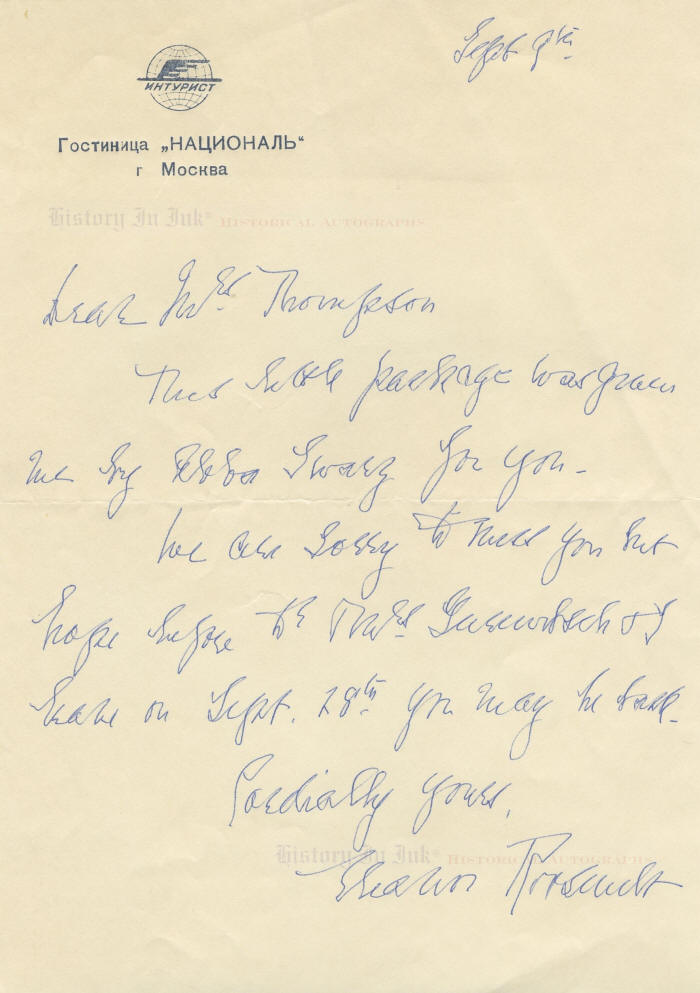 Sept 9th.
ИНТУРИСТ
Гостиница „НАЦИОНАЛЬ“
г Москва
History In Ink® HISTORICAL AUTOGRAPHS
Dear Mrs Thompson
This little package was given
me by for you.
We are sorry to miss you but
hope before Dr & Mrs Gurewitsch & I
leave on Sept. 28th you may be back.
Cordially yours,
History In Ink® HISTORICAL AUTOGRAPHS
Eleanor Roosevelt